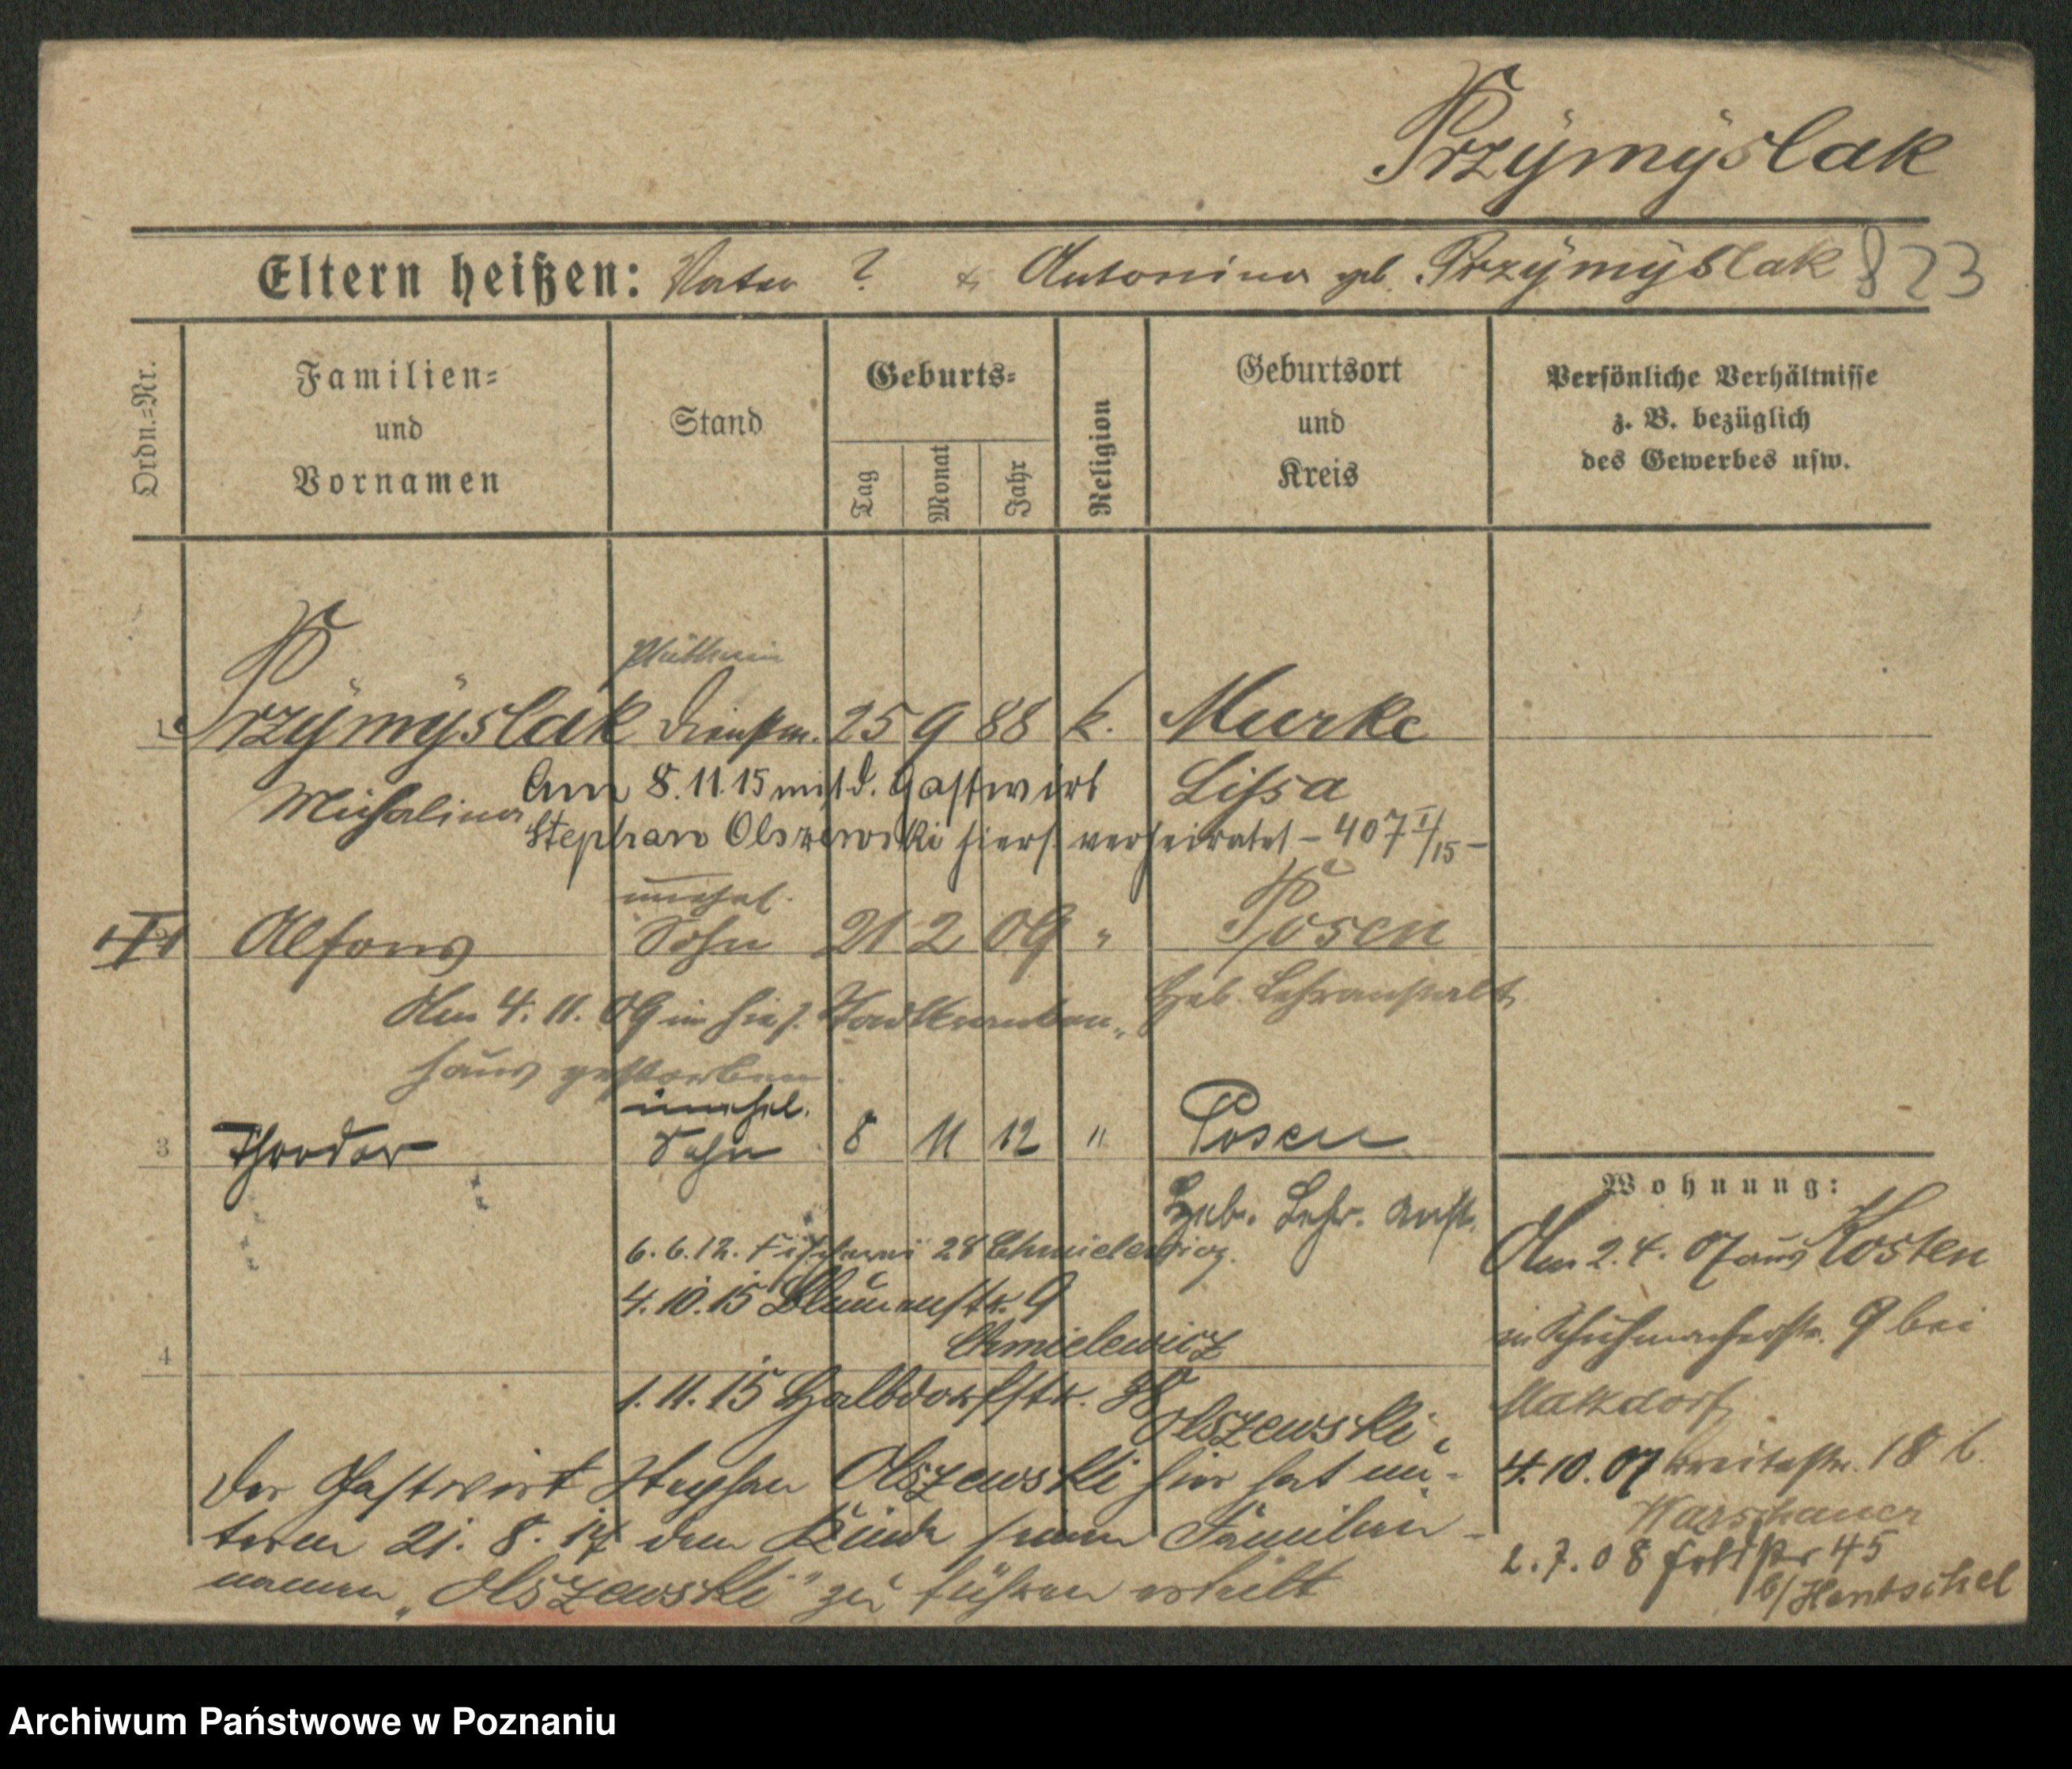 Przymyslak
Eltern heißen: Vater ? & Antonina geb. Przymyslak 823
Ordn.=Nr.
Familien=
und
Vornamen
Stand
Geburts=
Tag
Monat
Jahr
Religion
Geburtsort
und
Kreis
Persönliche Verhältnisse
z. B. bezüglich
des Gewerbes usw.
Plätterin
1 Przymyslak Dienstm. 25 9 88 k. Murke
Michalina Am 8.11.15 mit d. Gastwirt Lissa
Stephan Olszewski hiers. verheiratet – 407 I/15 –
unehel.
Alfons Sohn 21 2 09 " Posen
Am 4. 11. 09 im hies. Stadtkranken- Heb. Lehranstalt
haus gestorben.
unehel.
3 Theodor Sohn 8 11 12 " Posen
Heb. Lehr. Anst.
6. 6. 12. Fischerei 28 Chmielewicz.
4. 10. 15 Blumenstr. 9
Chmielewicz
4
1. 11. 15 Halbdorfstr. 38
Olszewski
Der Gastwirt Stephan Olszewski hier hat un-
term 21. 8. 17 dem Kinde seinen Familien-
namen „Olszewski" zu führen erteilt
Wohnung:
Am 2. 4. 07 aus Kosten
in Schuhmacherstr. 9 bei
Matzdorf
4. 10. 07 Breitestr. 18 b.
Warschauer
2. 7. 08 Feldstr 45
b/ Hentschel
Archiwum Państwowe w Poznaniu